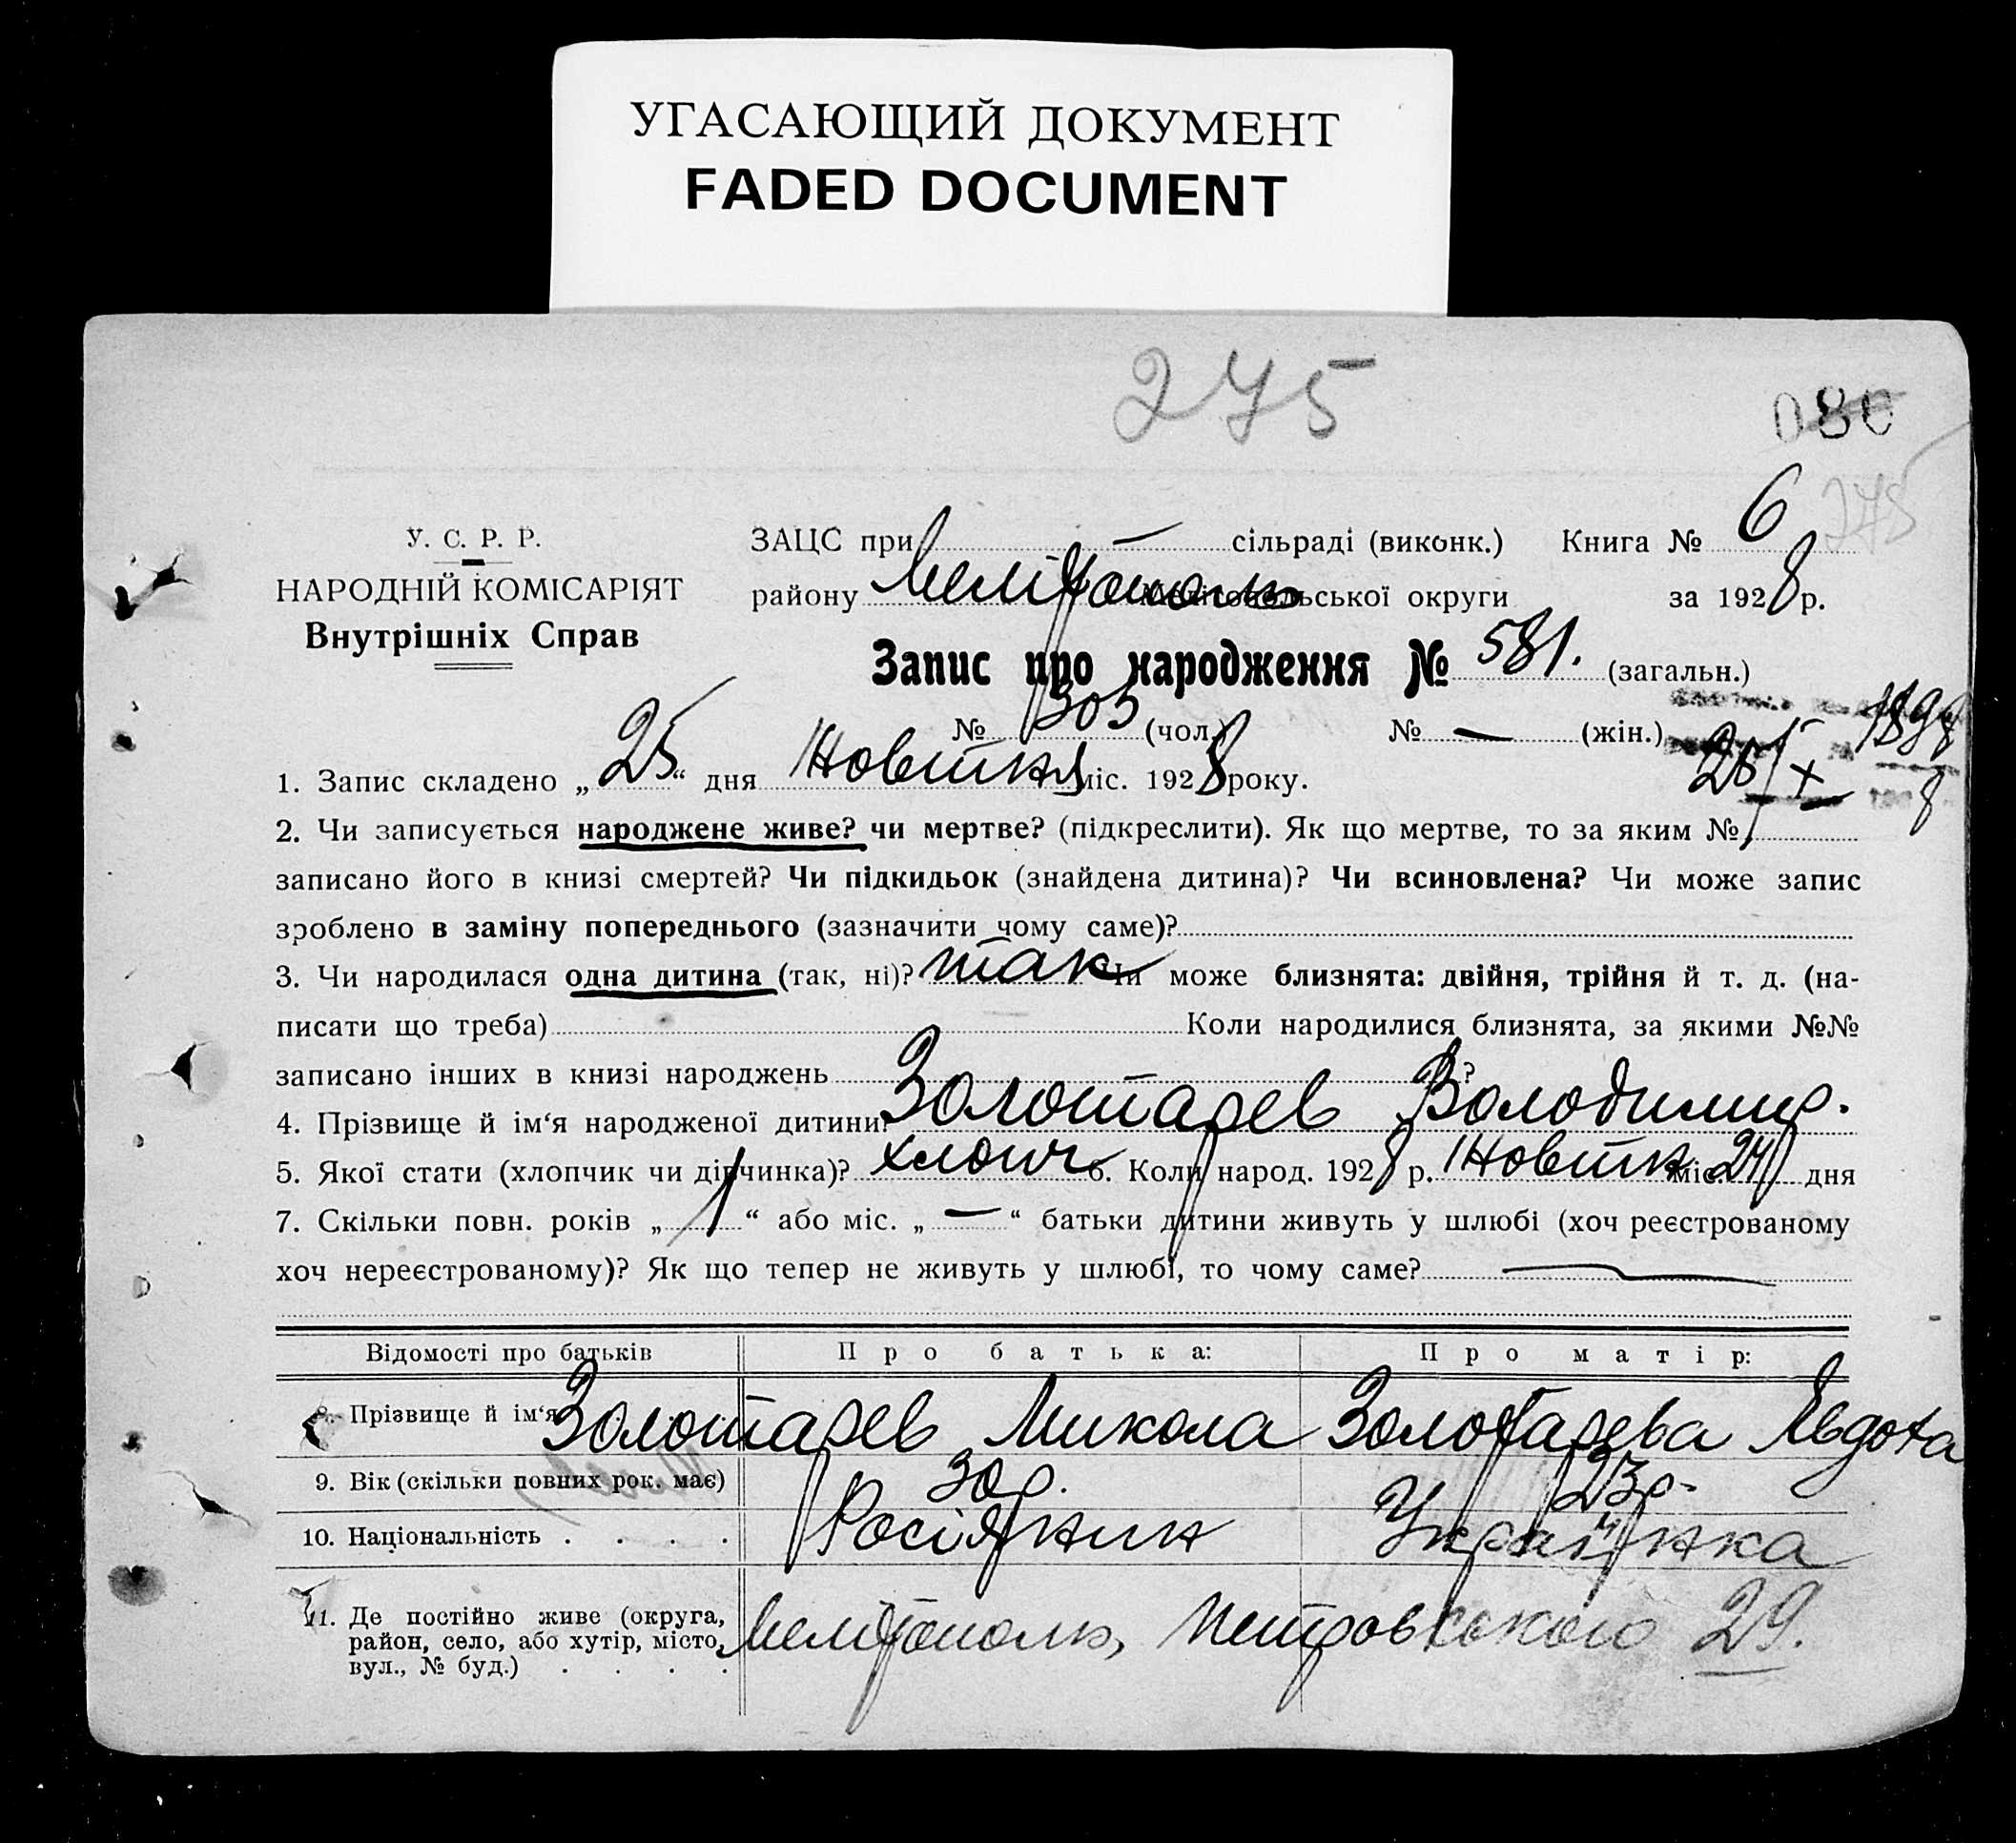 УГАСАЮЩИЙ ДОКУМЕНТ
FADED DOCUMENT
275
080
275
У. С. Р. Р.
НАРОДНІЙ КОМІСАРІЯТ
Внутрішніх Справ
ЗАЦС при — сільраді (виконк.) Книга № 6
району Мелітополь Мелітопольської округи за 1928 р.
Запис про народження № 581. (загальн.)
№ 303 (чол.) № — (жін.)
1898
25/X
8
1. Запис складено „25“ дня Жовтня міс. 1928 року.
2. Чи записується народжене живе? чи мертве? (підкреслити). Як що мертве, то за яким №
записано його в книзі смертей? Чи підкидьок (знайдена дитина)? Чи всиновлена? Чи може запис
зроблено в заміну попереднього (зазначити чому саме)?
3. Чи народилася одна дитина (так, ні)? так Чи може близнята: двійня, трійня й т. д. (на-
писати що треба) Коли народилися близнята, за якими №№
записано інших в книзі народжень ?
4. Прізвище й ім‘я народженої дитини: Золотарев Володимир.
5. Якої стати (хлопчик чи дівчинка)? хлопч 6. Коли народ. 1928 р. Жовтня міс. 24 дня
7. Скільки повн. років „1“ або міс. „—“ батьки дитини живуть у шлюбі (хоч реєстрованому
хоч нереєстрованому)? Як що тепер не живуть у шлюбі, то чому саме? —
Відомості про батьків Про батька: Про матір:
8. Прізвище й ім‘я Золотарев Микола Золотарева Явдоха
9. Вік (скільки повних рок. має) 30 р. 23 р.
10. Національність . . . . Росіянин Українка
11. Де постійно живе (округа, Мелітополь, Петровського 29.
район, село, або хутір, місто,
вул., № буд.) . . . .